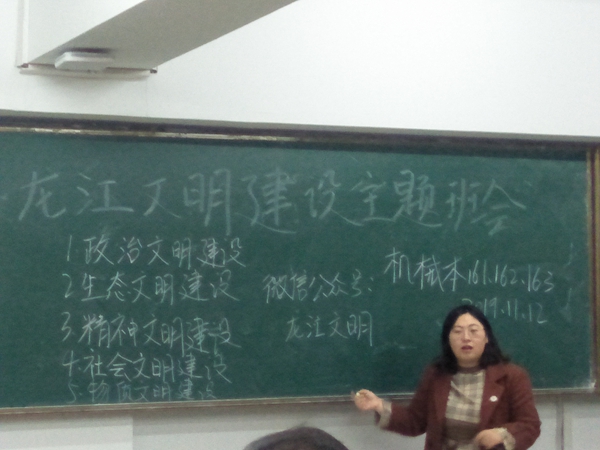 龙江文明建设主题班会
1 政治文明建设
2 生态文明建设
3 精神文明建设
4. 社会文明建设
5. 物质文明建设
微信公众号:
龙江文明
机械本161.162.163
2019.11.12